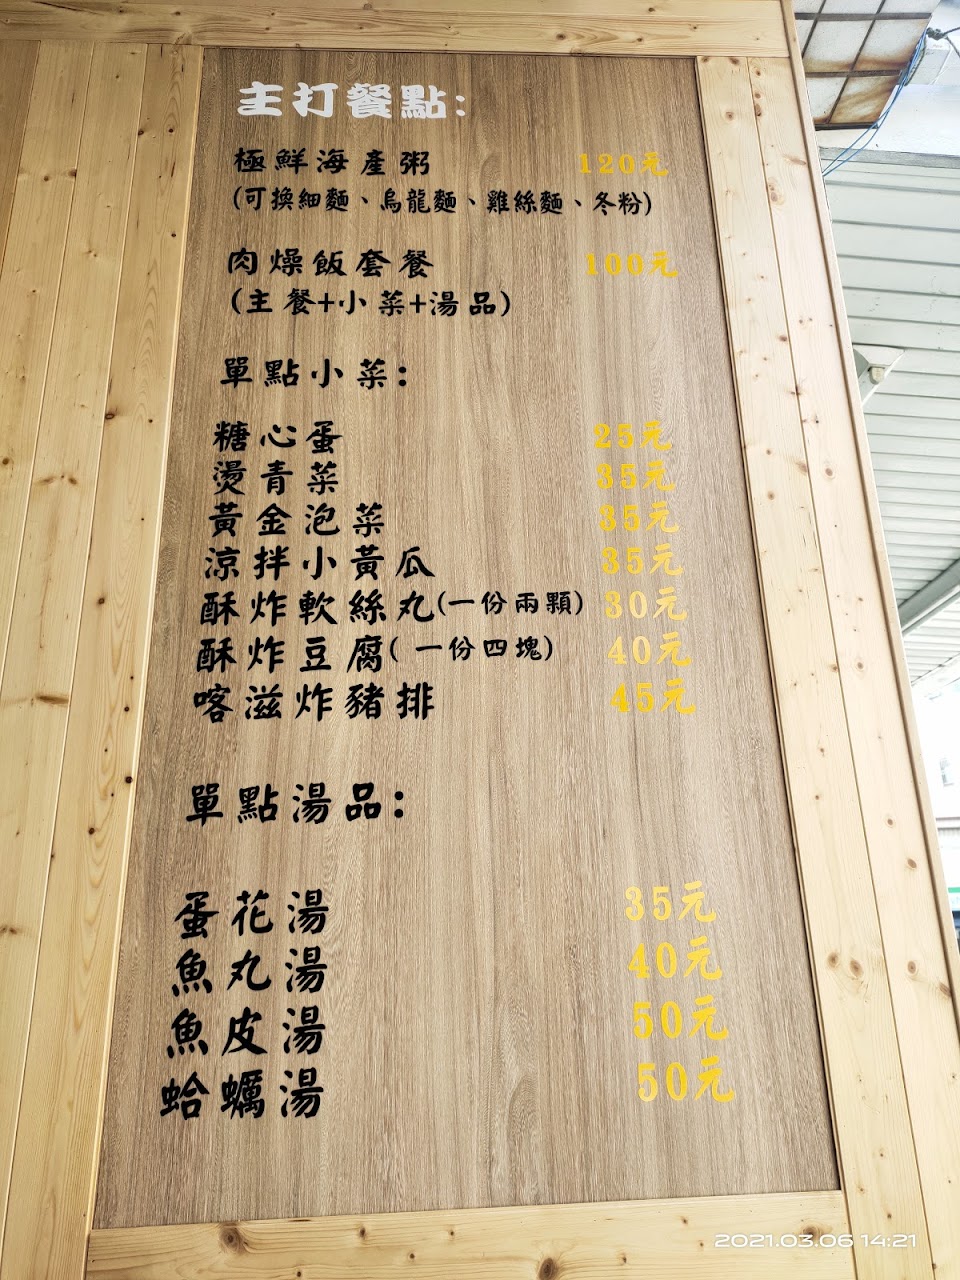 主打餐點:
極鮮海產粥 120元
(可換細麵、烏龍麵、雞絲麵、冬粉)
肉燥飯套餐 100元
(主餐+小菜+湯品)
單點小菜:
糖心蛋 25元
燙青菜 35元
黃金泡菜 35元
涼拌小黃瓜 35元
酥炸軟絲丸(一份兩顆) 30元
酥炸豆腐(一份四塊) 40元
喀滋炸豬排 45元
單點湯品:
蛋花湯 35元
魚丸湯 40元
魚皮湯 50元
蛤蠣湯 50元
2021.03.06 14:21